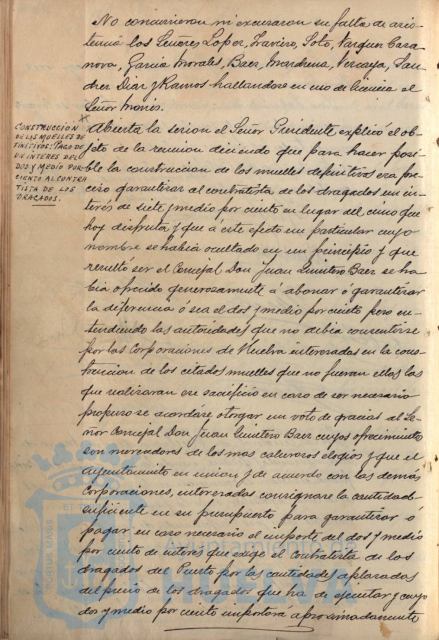 No concurrieron ni excusaron su falta de asis-
tencia los Señores Lopez, Traviero, Soto, Vazquez Casa-
nova, Garcia Morales, Baez, Mardrena, Vercaya, San-
chez Diaz y Ramos hallandose en uso de licencia el
Señor Monis.
CONSTRUCCION
DE LOS MUELLES DE-
FINITIVOS: PAGO DE
UN INTERES DEL
DOS Y MEDIO POR
CIENTO AL CONTRA-
TISTA DE LOS
DRAGADOS.
Abierta la sesion el Señor Presidente explicó el ob-
jeto de la reunion diciendo que para hacer posi-
ble la construccion de los muelles definitivos era pre-
ciso garantizar al contratista de los dragados un in-
terés de siete y medio por ciento en lugar del cinco que
hoy disfruta, y que á este efecto un particular cuyo
nombre se habia ocultado en un principio y que
resultó ser el Concejal Don Juan Quintero Baez se ha-
bia ofrecido generosamente á abonar ó garantizar
la diferencia ó sea el dos y medio por ciento pero en-
tendiendo las autoridades que no debia consentirse
por las Corporaciones de Huelva interesadas en la cons-
truccion de los citados muelles que no fueran ellas las
que realizaran ese sacrificio en caso de ser necesario
propuso se acordase otorgar un voto de gracias al Se-
ñor Concejal Don Juan Quintero Baez cuyos ofrecimientos
son merecedores de los mas calurosos elogios y que el
Ayuntamiento en union y de acuerdo con las demás
Corporaciones, interesadas consignare la cantidad
suficiente en su presupuesto para garantizar ó
pagar en caso necesario el importe del dos y medio
por ciento de interés que exige el contratista de los
dragados del Puerto por las cantidades aplazadas
del precio de los dragados que ha de ejecutar y cuyo
dos y medio por ciento importará aproximadamente